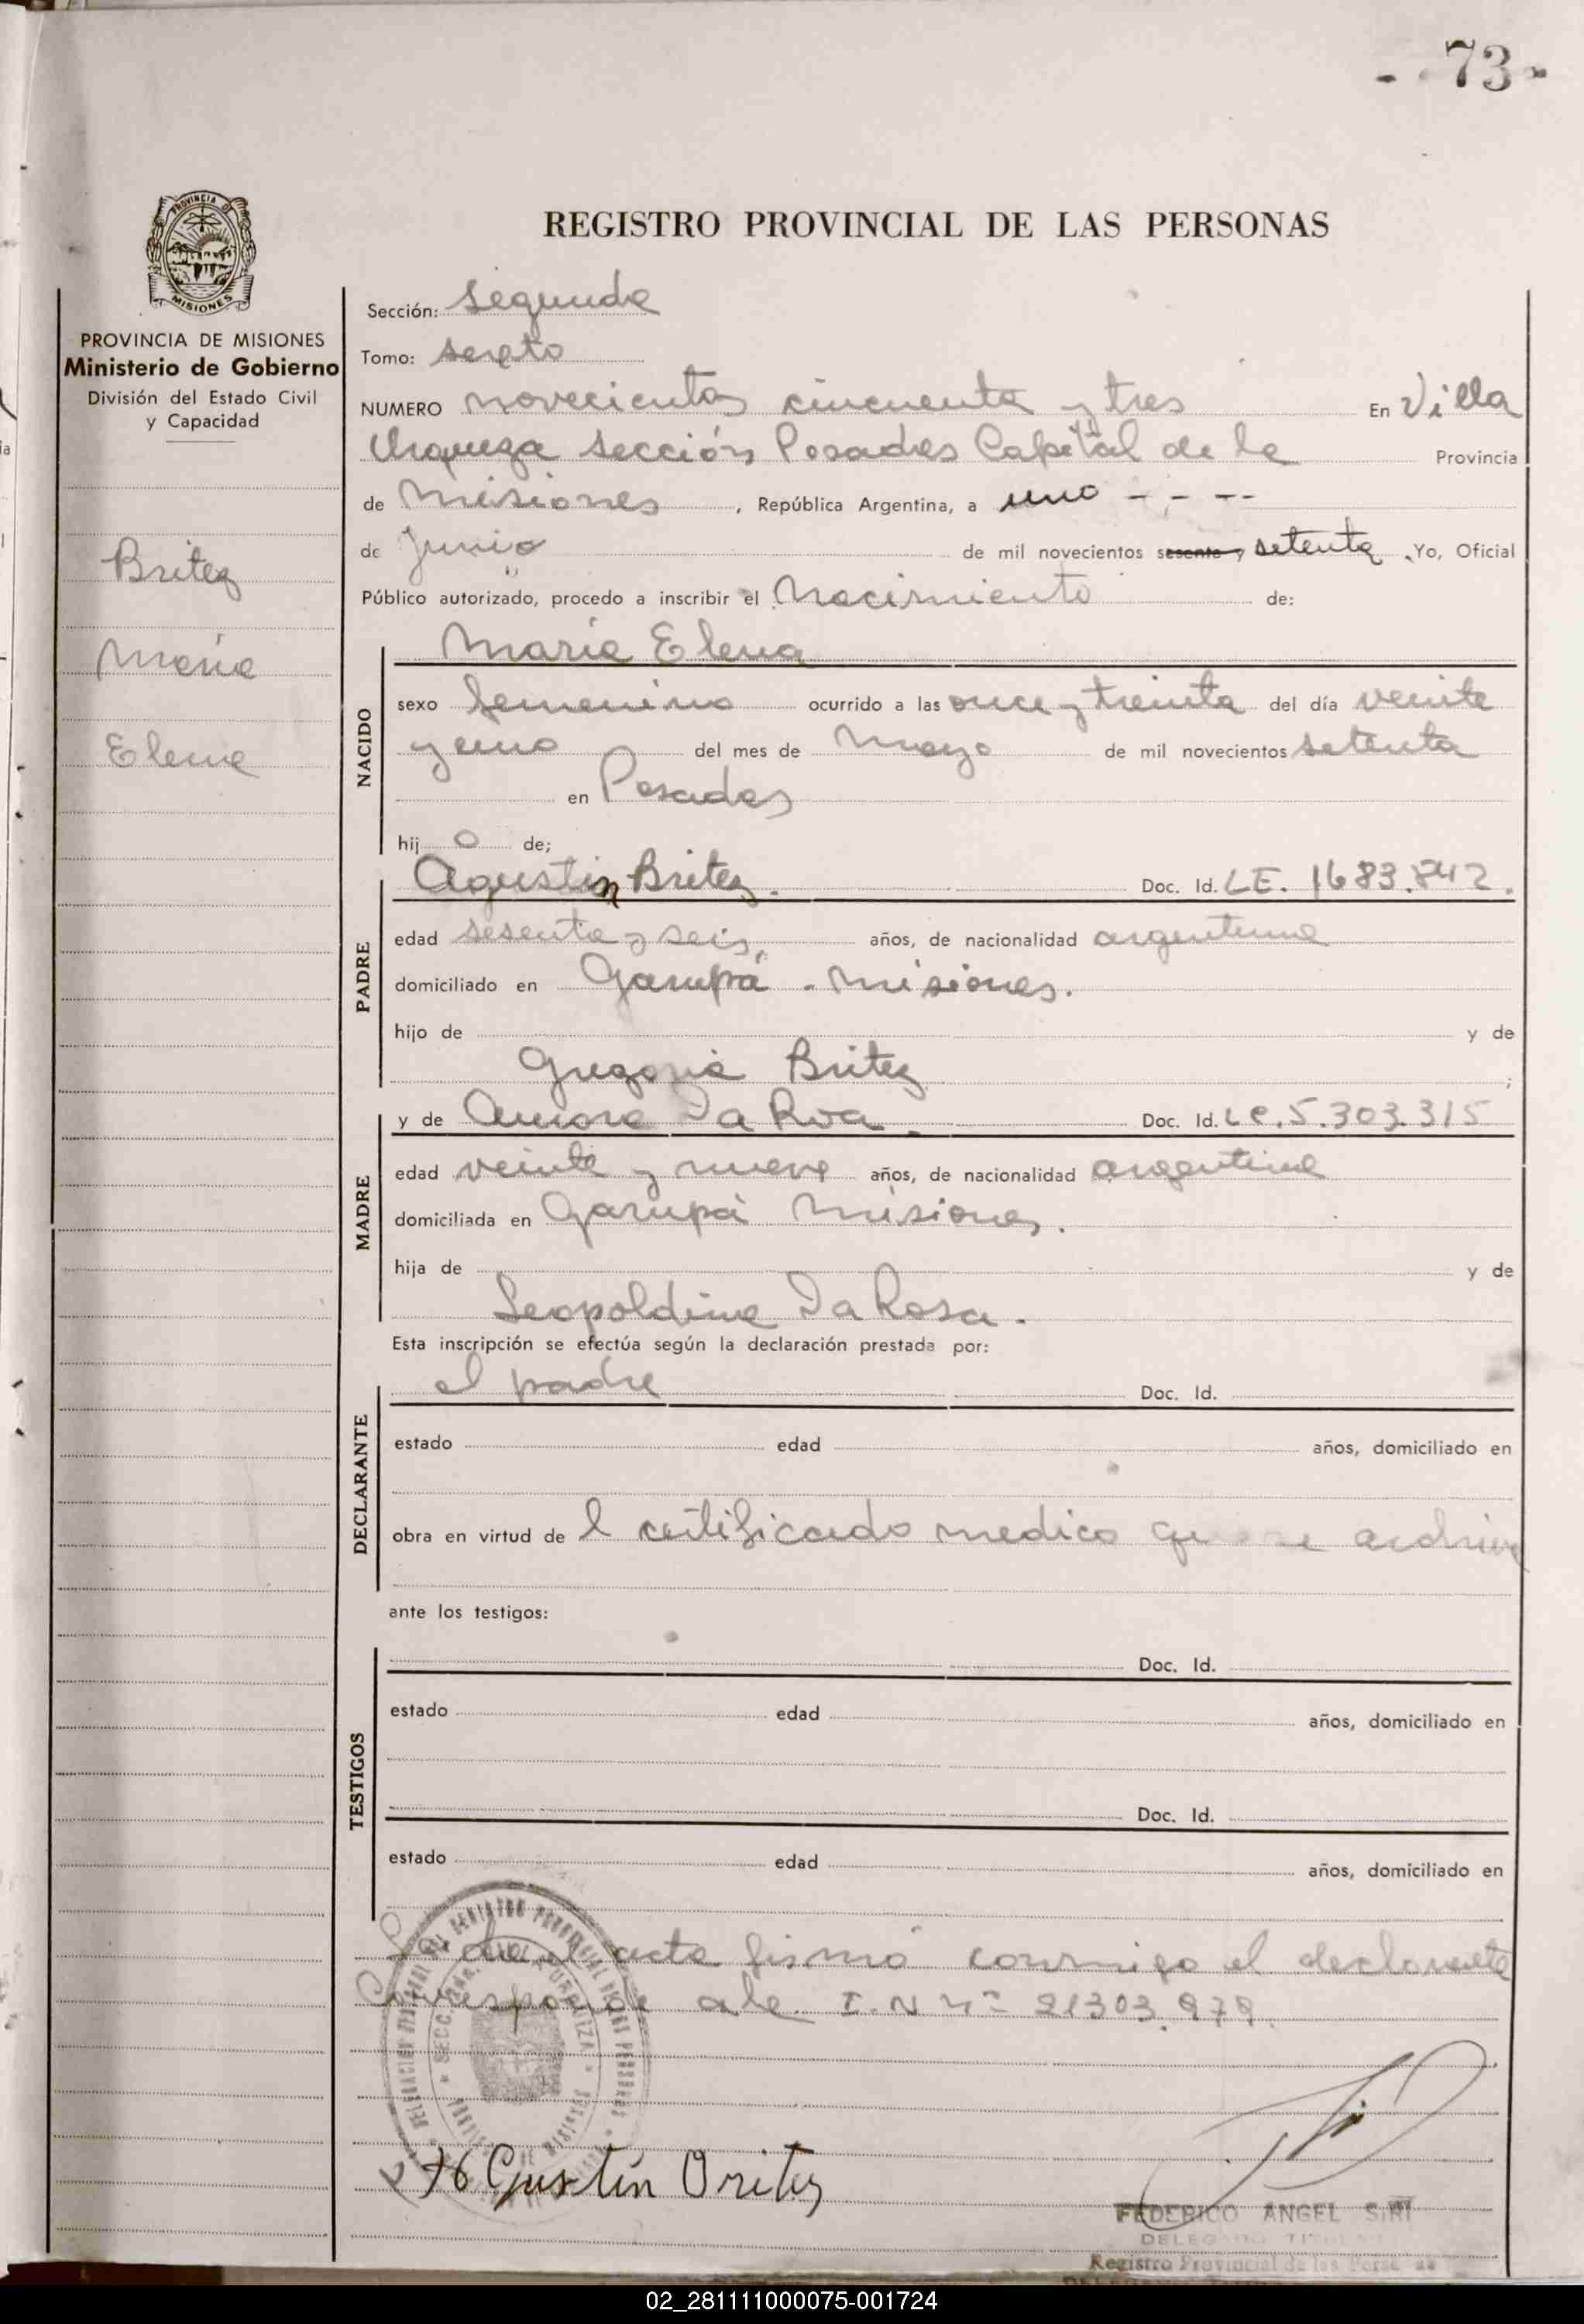 - 73 -
PROVINCIA DE MISIONES
PROVINCIA DE MISIONES
Ministerio de Gobierno
División del Estado Civil
y Capacidad
Britez
María
Elena
REGISTRO PROVINCIAL DE LAS PERSONAS
Sección: Segunda
Tomo: sexto
NUMERO novecientos cincuenta y tres En Villa
Urquiza sección Posadas Capital de la Provincia
de Misiones , República Argentina, a uno - - - -
de Junio de mil novecientos sesenta y setenta .Yo, Oficial
Público autorizado, procedo a inscribir el Nacimiento de:
NACIDO
María Elena
sexo femenino ocurrido a las once y treinta del día veinte
y uno del mes de Mayo de mil novecientos setenta
en Posadas
hij a de;
PADRE
Agustin Britez. Doc. Id. LE. 1683.842.
edad sesenta y seis, años, de nacionalidad argentina
domiciliado en Garupá - Misiones.
hijo de y de
Gregoria Britez ;
MADRE
y de Aurora Da Roa. Doc. Id. LC.5.303.315
edad veinte y nueve años, de nacionalidad argentina
domiciliada en Garupá Misiones.
hija de y de
Leopoldina Da Rosa.
Esta inscripción se efectúa según la declaración prestada por:
DECLARANTE
el padre Doc. Id.
estado edad años, domiciliado en
obra en virtud de l certificado medico que se archiva
ante los testigos:
TESTIGOS
Doc. Id.
estado edad años, domiciliado en
Doc. Id.
estado edad años, domiciliado en
Leida el acta firmó conmigo el declarante
Corresponde ale. I.N Nº 21303.979.
Agustín Britez
FEDERICO ANGEL SIRI
DELEGADO TITULAR
Registro Provincial de las Personas
02_281111000075-001724